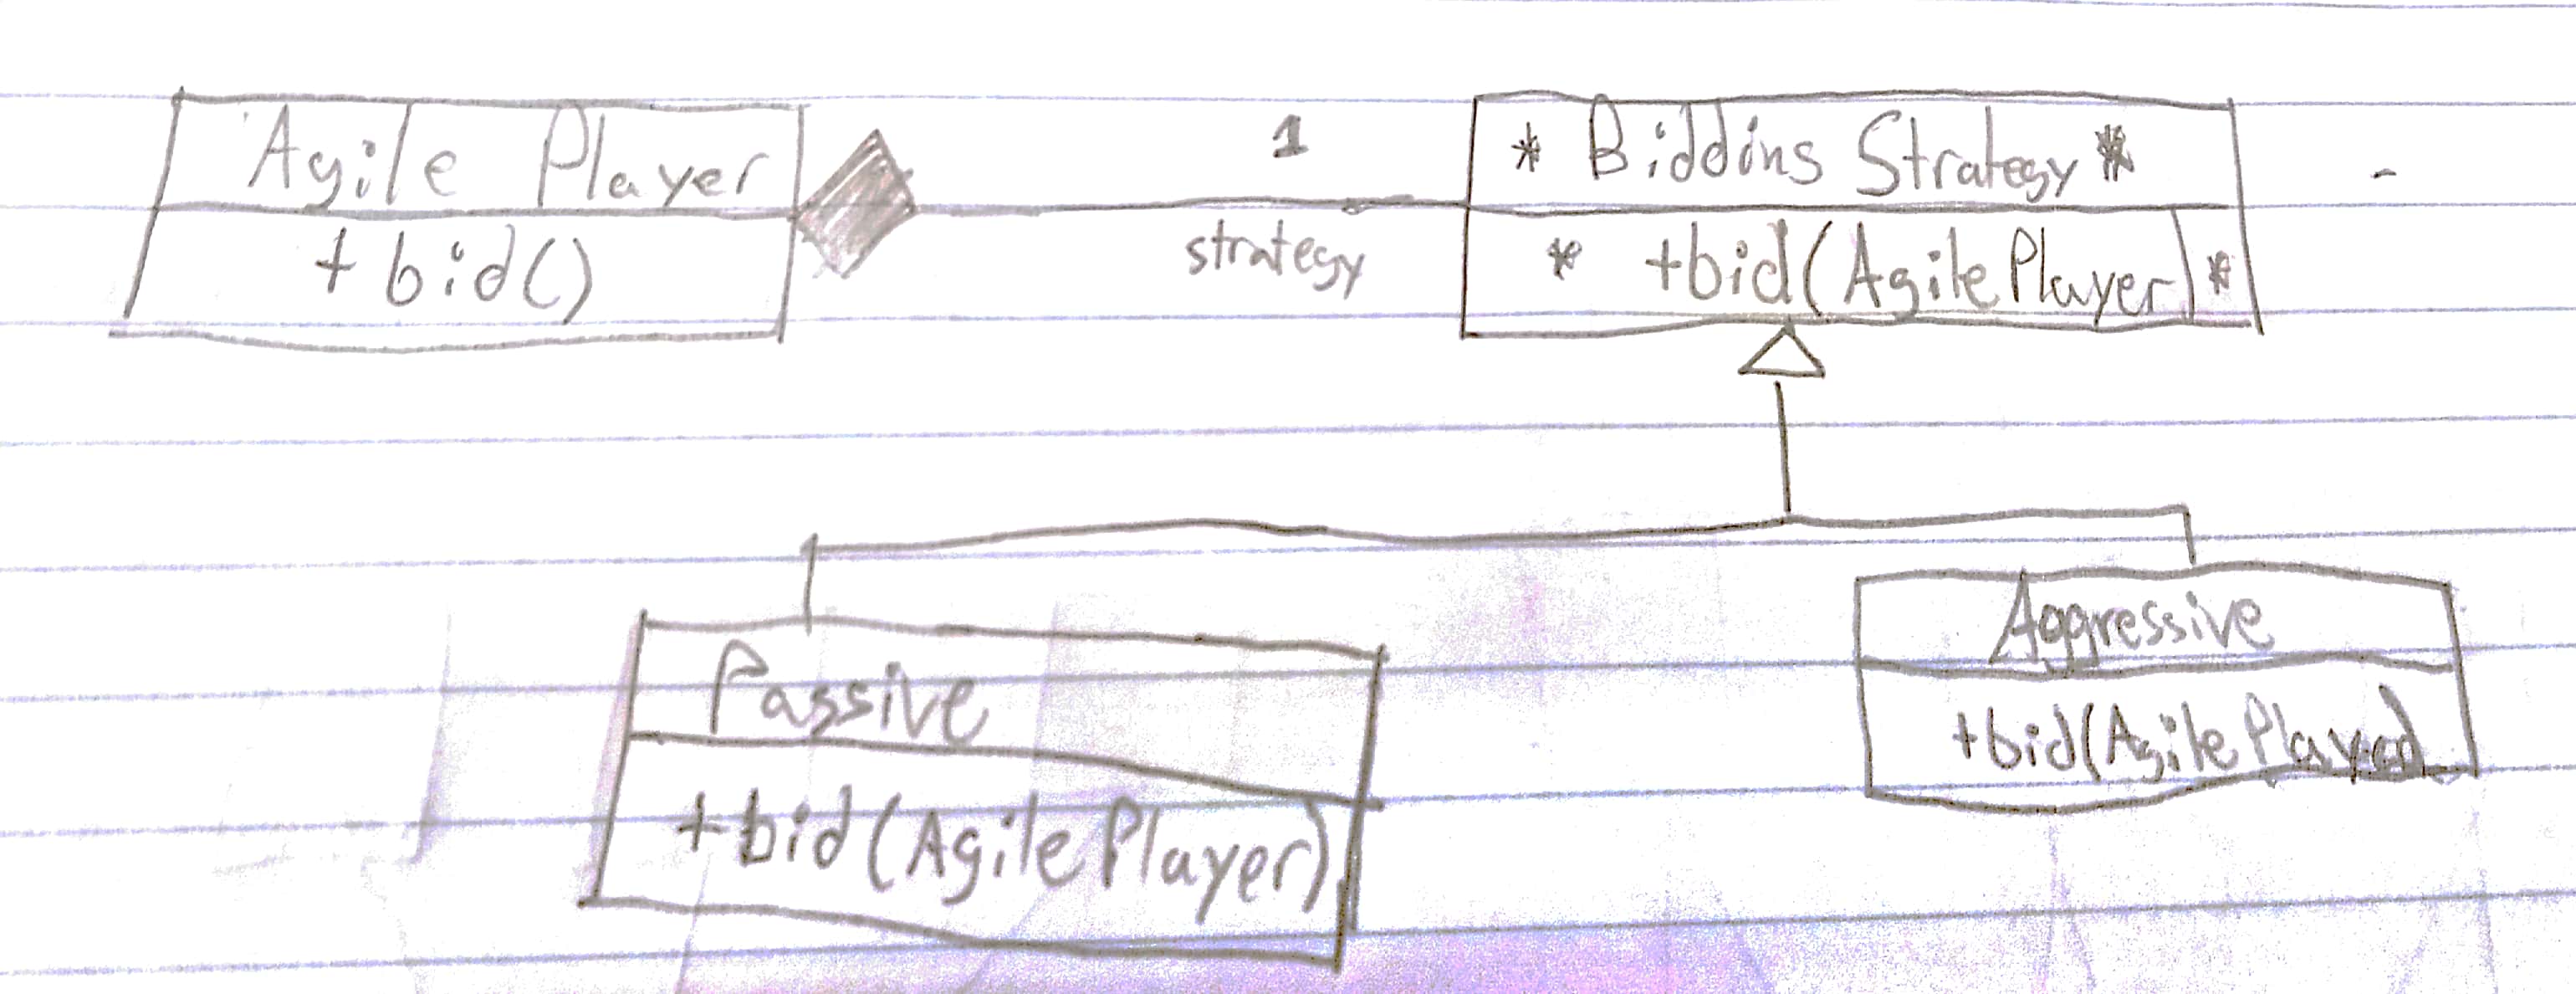 Agile Player
+ bid()
1
strategy
* Bidding Strategy *
* +bid(AgilePlayer) *
Passive
+bid(AgilePlayer)
Aggressive
+bid(AgilePlayer)